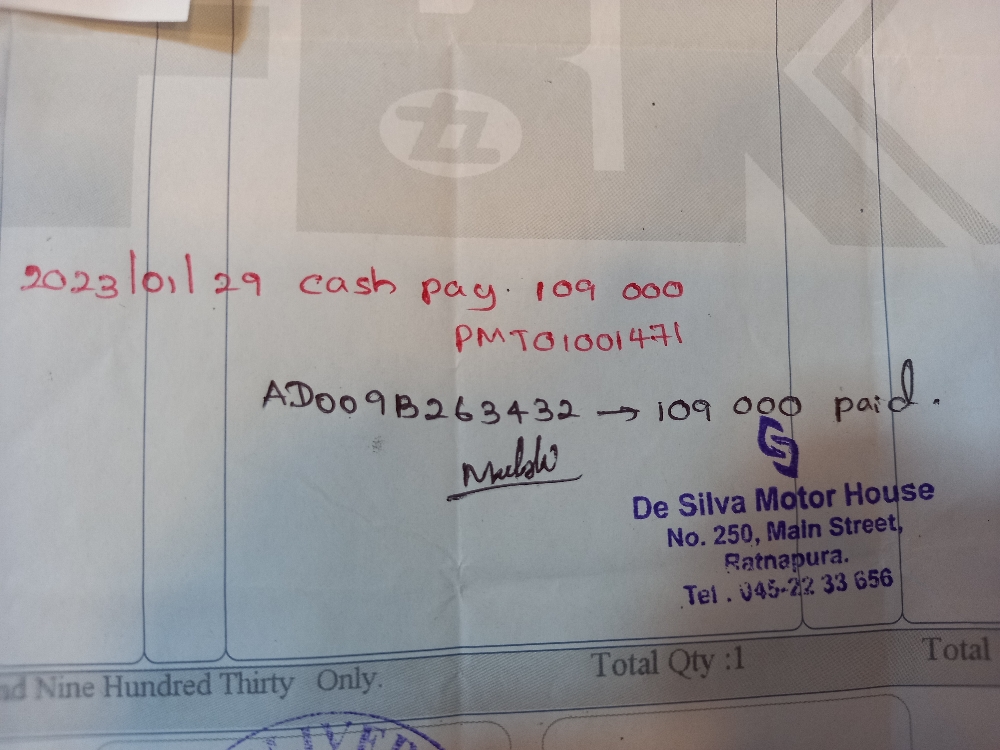 2023/01/29 cash pay. 109 000
PMT01001471
AD009B263432 → 109 000 paid.
De Silva Motor House
No. 250, Main Street,
Ratnapura.
Tel . 045-22 33 656
Nine Hundred Thirty Only.
Total Qty :1
Total